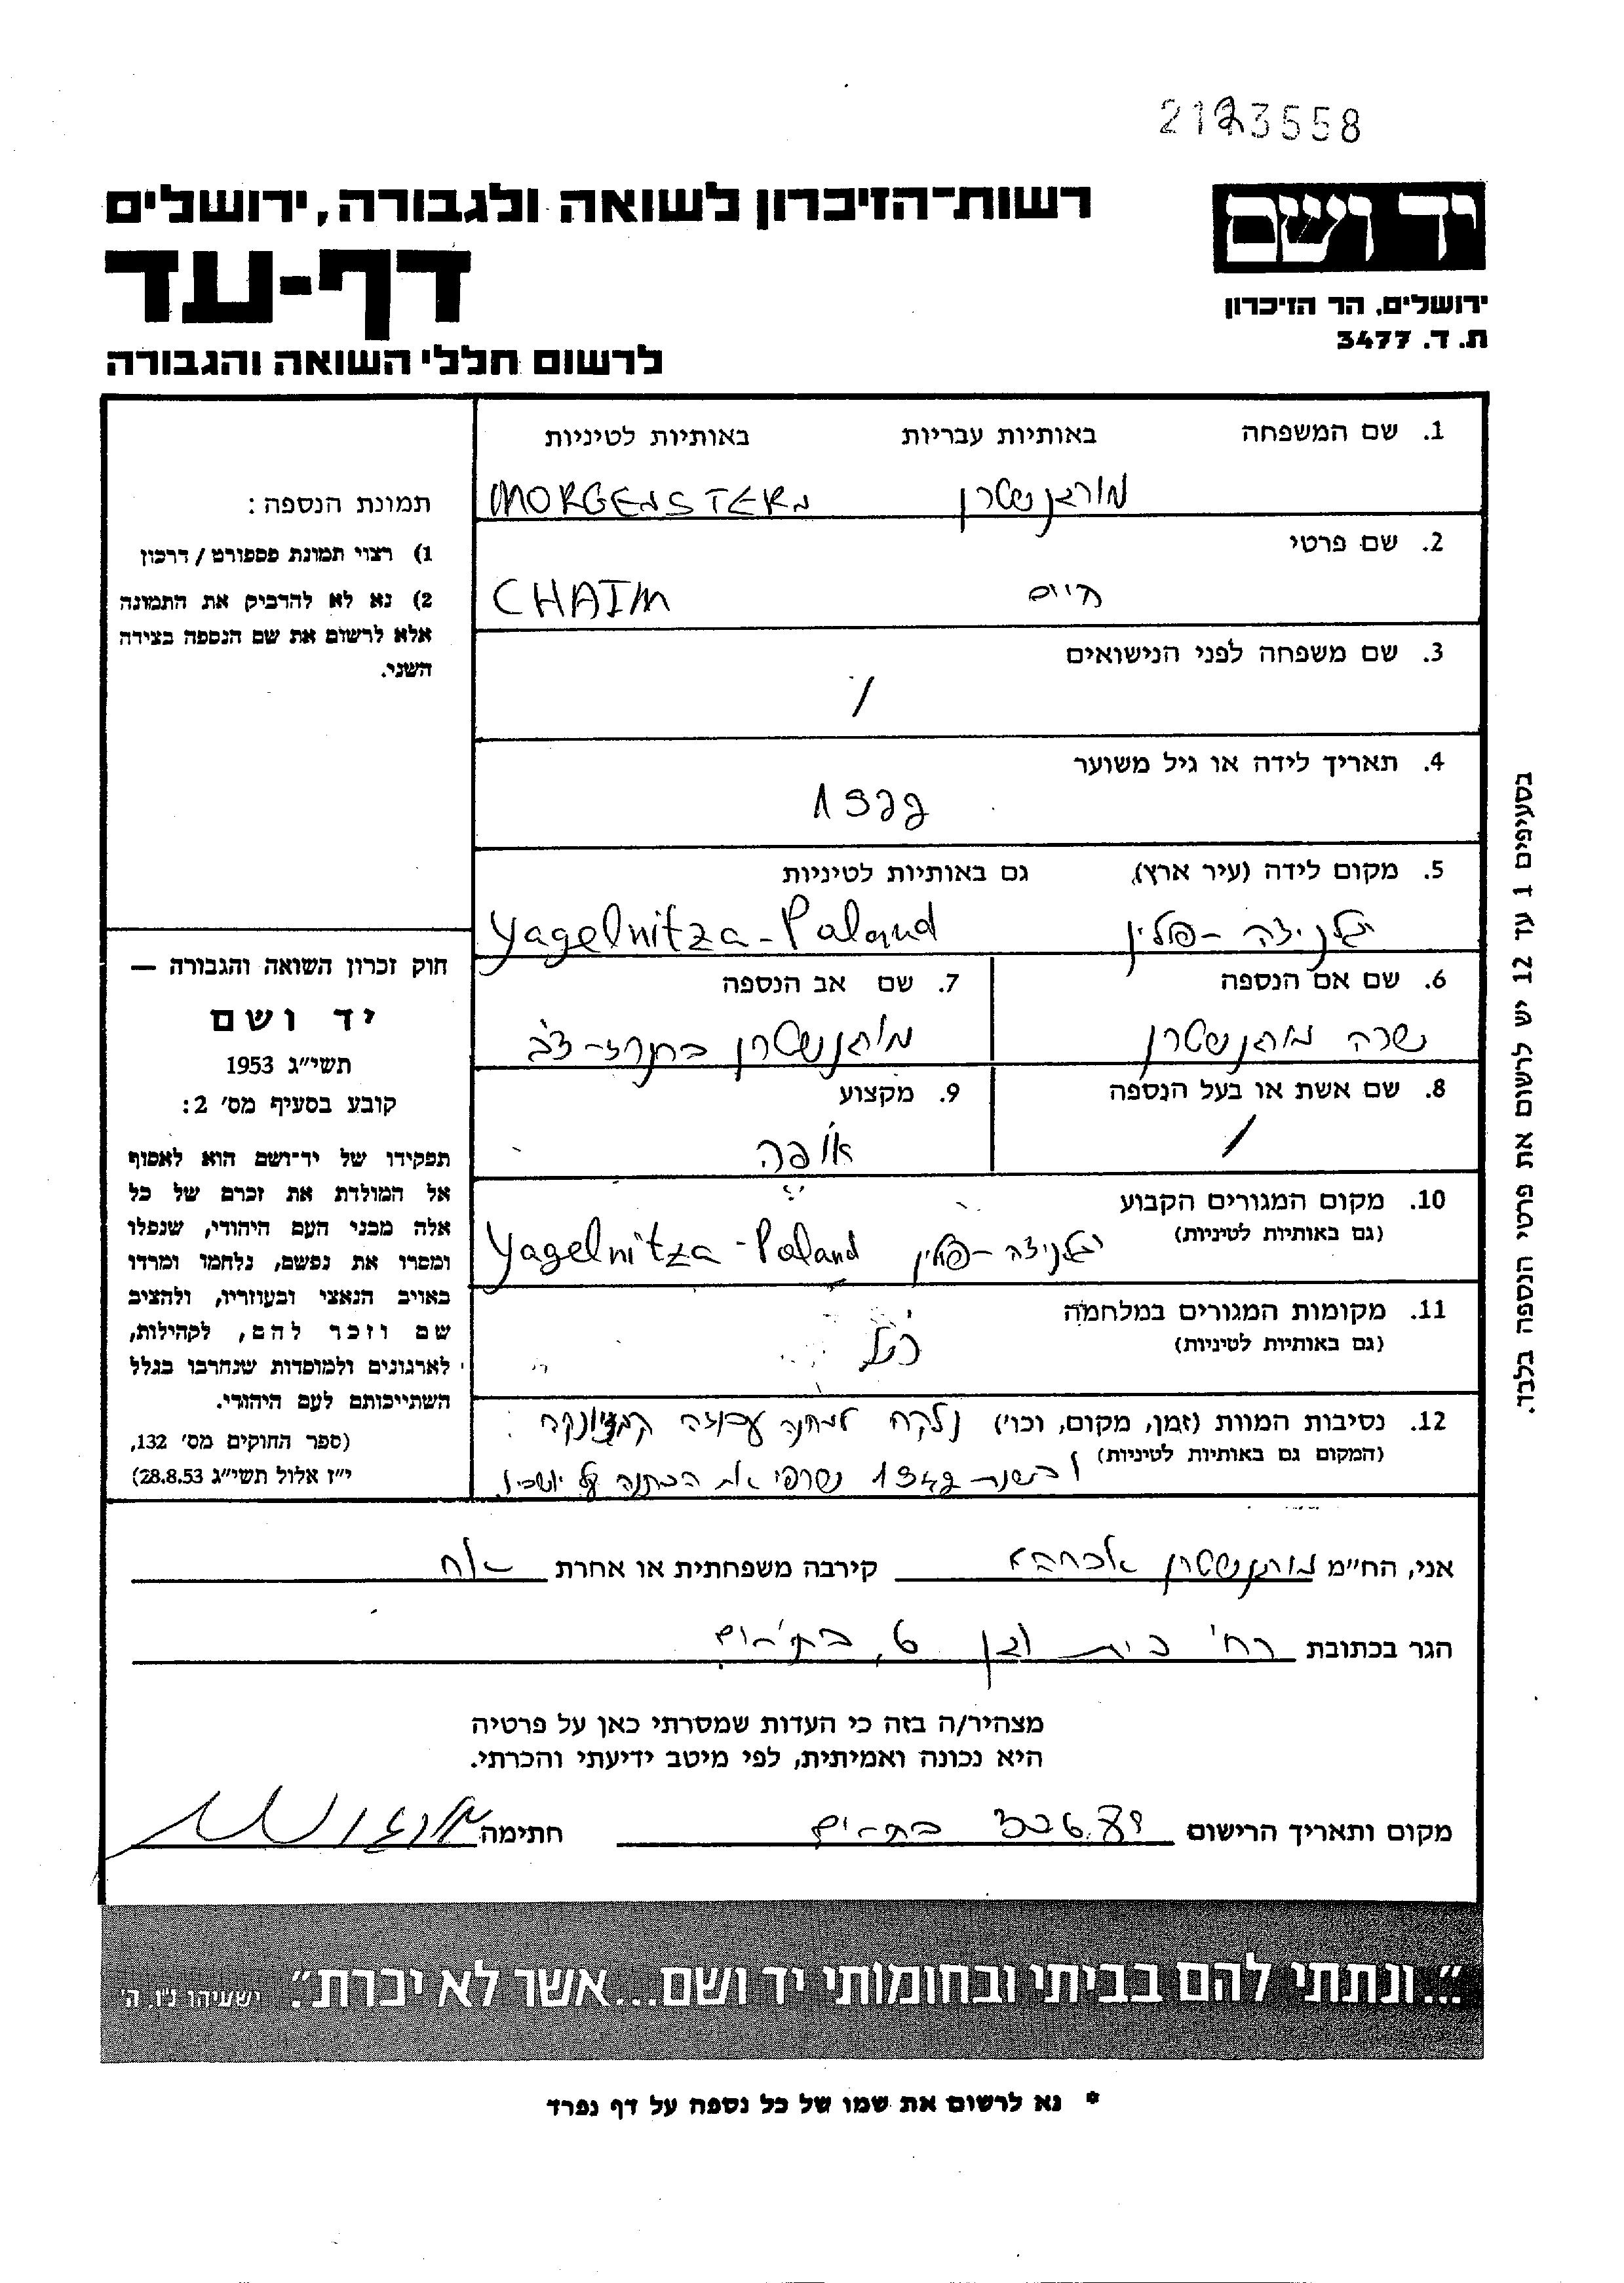 2123558
יד ושם
ירושלים, הר הזיכרון
ת. ד. 3477
רשות-הזיכרון לשואה ולגבורה, ירושלים
דף-עד
לרשום חללי השואה והגבורה
1. שם המשפחה באותיות עבריות באותיות לטיניות
מורגנשטרן MORGENSTERN
2. שם פרטי
חיים CHAIM
3. שם משפחה לפני הנישואים
/
4. תאריך לידה או גיל משוער
1922
5. מקום לידה (עיר ארץ) גם באותיות לטיניות
יגלניצה - פולין Yagelnitza - Poland
6. שם אם הנספה 7. שם אב הנספה
שרה מורגנשטרן מורגנשטרן
8. שם אשת או בעל הנספה 9. מקצוע
/ אופה
10. מקום המגורים הקבוע
(גם באותיות לטיניות)
יגלניצה - פולין Yagelnitza - Poland
11. מקומות המגורים במלחמה
(גם באותיות לטיניות)
כנ"ל
12. נסיבות המוות (זמן, מקום, וכו') נלקח למחנה עבודה
(המקום גם באותיות לטיניות) ובשנת 1942 שרפו את המחנה על יושביו.
תמונת הנספה:
1) רצוי תמונת פספורט / דרכון
2) נא לא להדביק את התמונה
אלא לרשום את שם הנספה בצידה
השני.
חוק זכרון השואה והגבורה —
יד ושם
תשי"ג 1953
קובע בסעיף מס' 2:
תפקידו של יד-ושם הוא לאסוף
אל המולדת את זכרם של כל
אלה מבני העם היהודי, שנפלו
ומסרו את נפשם, נלחמו ומרדו
באויב הנאצי ובעוזריו, ולהציב
שם וזכר להם, לקהילות,
לארגונים ולמוסדות שנחרבו בגלל
השתייכותם לעם היהודי.
(ספר החוקים מס' 132,
י"ז אלול תשי"ג 28.8.53)
בסעיפים 1 עד 12 יש לרשום את פרטי הנספה בלבד.
אני, הח"מ מורגנשטרן קירבה משפחתית או אחרת אח
הגר בכתובת רח' בית וגן 6, בת-ים
מצהיר/ה בזה כי העדות שמסרתי כאן על פרטיה
היא נכונה ואמיתית, לפי מיטב ידיעתי והכרתי.
מקום ותאריך הרישום בת-ים חתימה
"...ונתתי להם בביתי ובחומותי יד ושם...אשר לא יכרת". ישעיהו נ"ו, ה'
* נא לרשום את שמו של כל נספה על דף נפרד